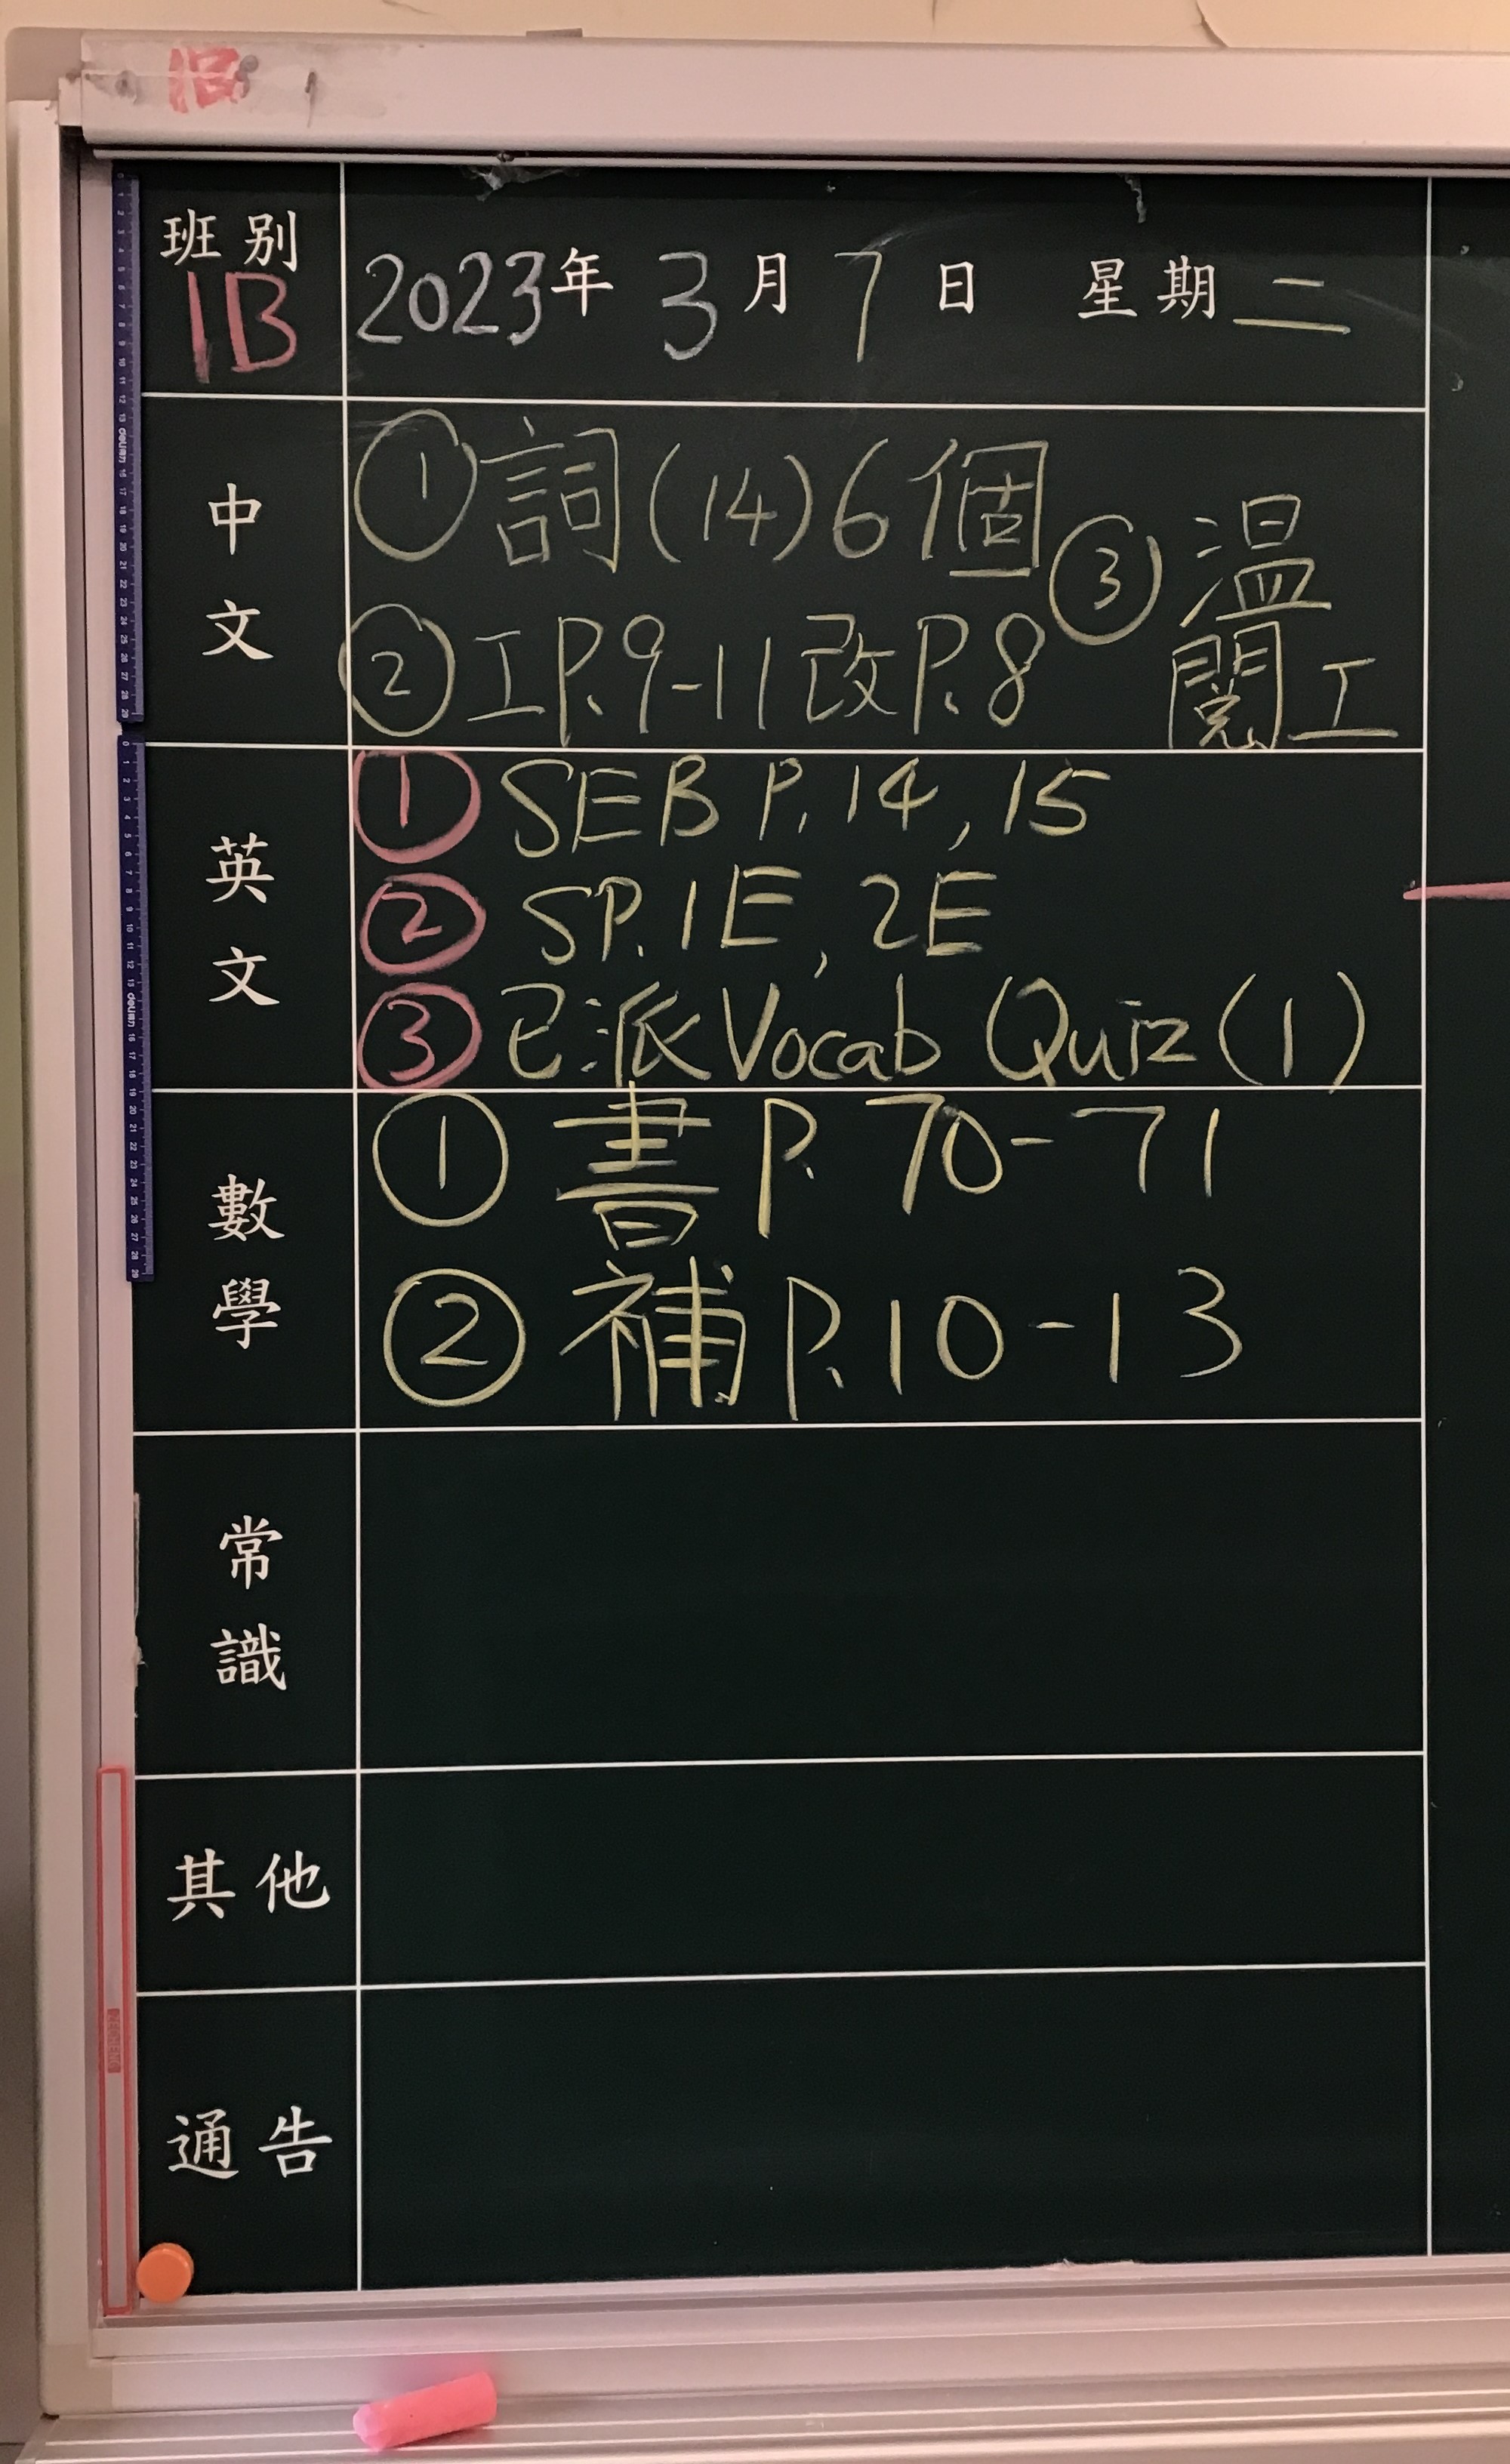 班別
1B
2023年 3月 7日 星期二
中文
① 詞(14)6個
② 工P.9-11 改P.8
③ 溫
閱工
英文
① SEB P.14, 15
② SP. 1E, 2E
③ 已派Vocab Quiz (1)
數學
① 書 P. 70-71
② 補 P.10-13
常識
其他
通告